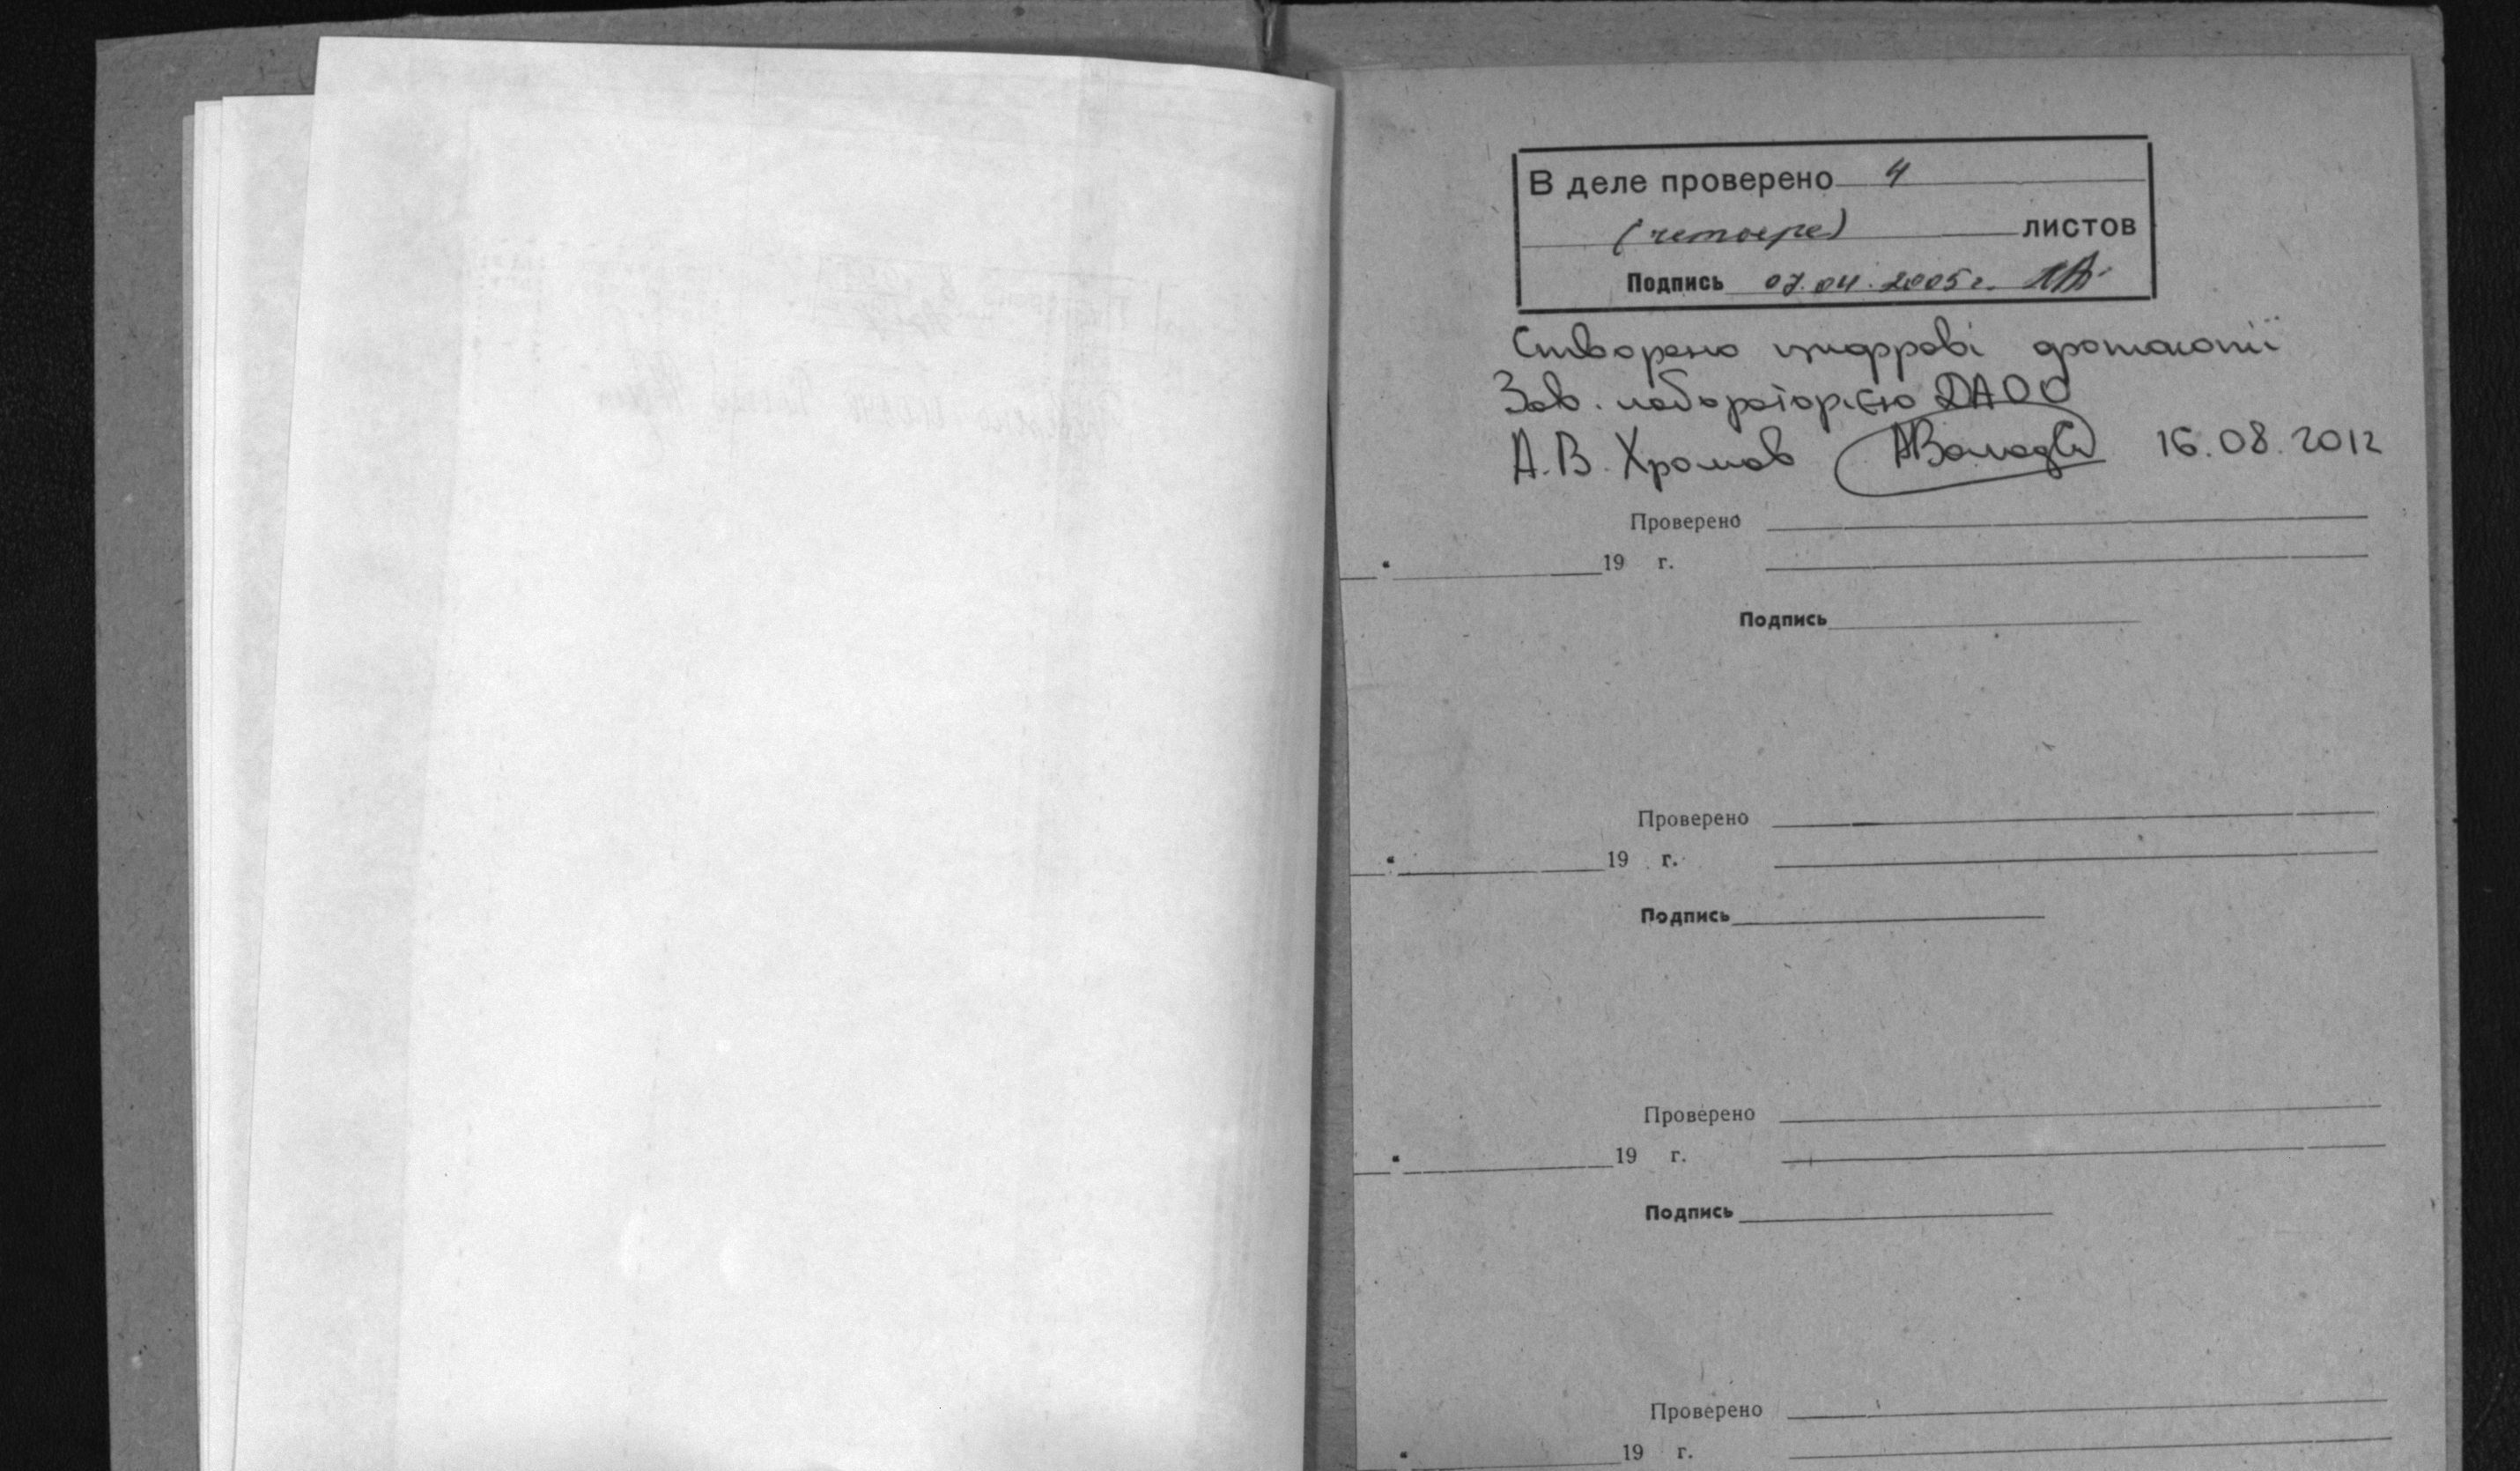 В деле проверено 4
(четыре) листов
Подпись 07.04.2005 г.
Створено цифрові фотокопії
Зав. лабораторією ДАОО
А.В. Хромов 16.08.2012
Проверено
" 19 г.
Подпись
Проверено
" 19 г.
Подпись
Проверено
" 19 г.
Подпись
Проверено
" 19 г.